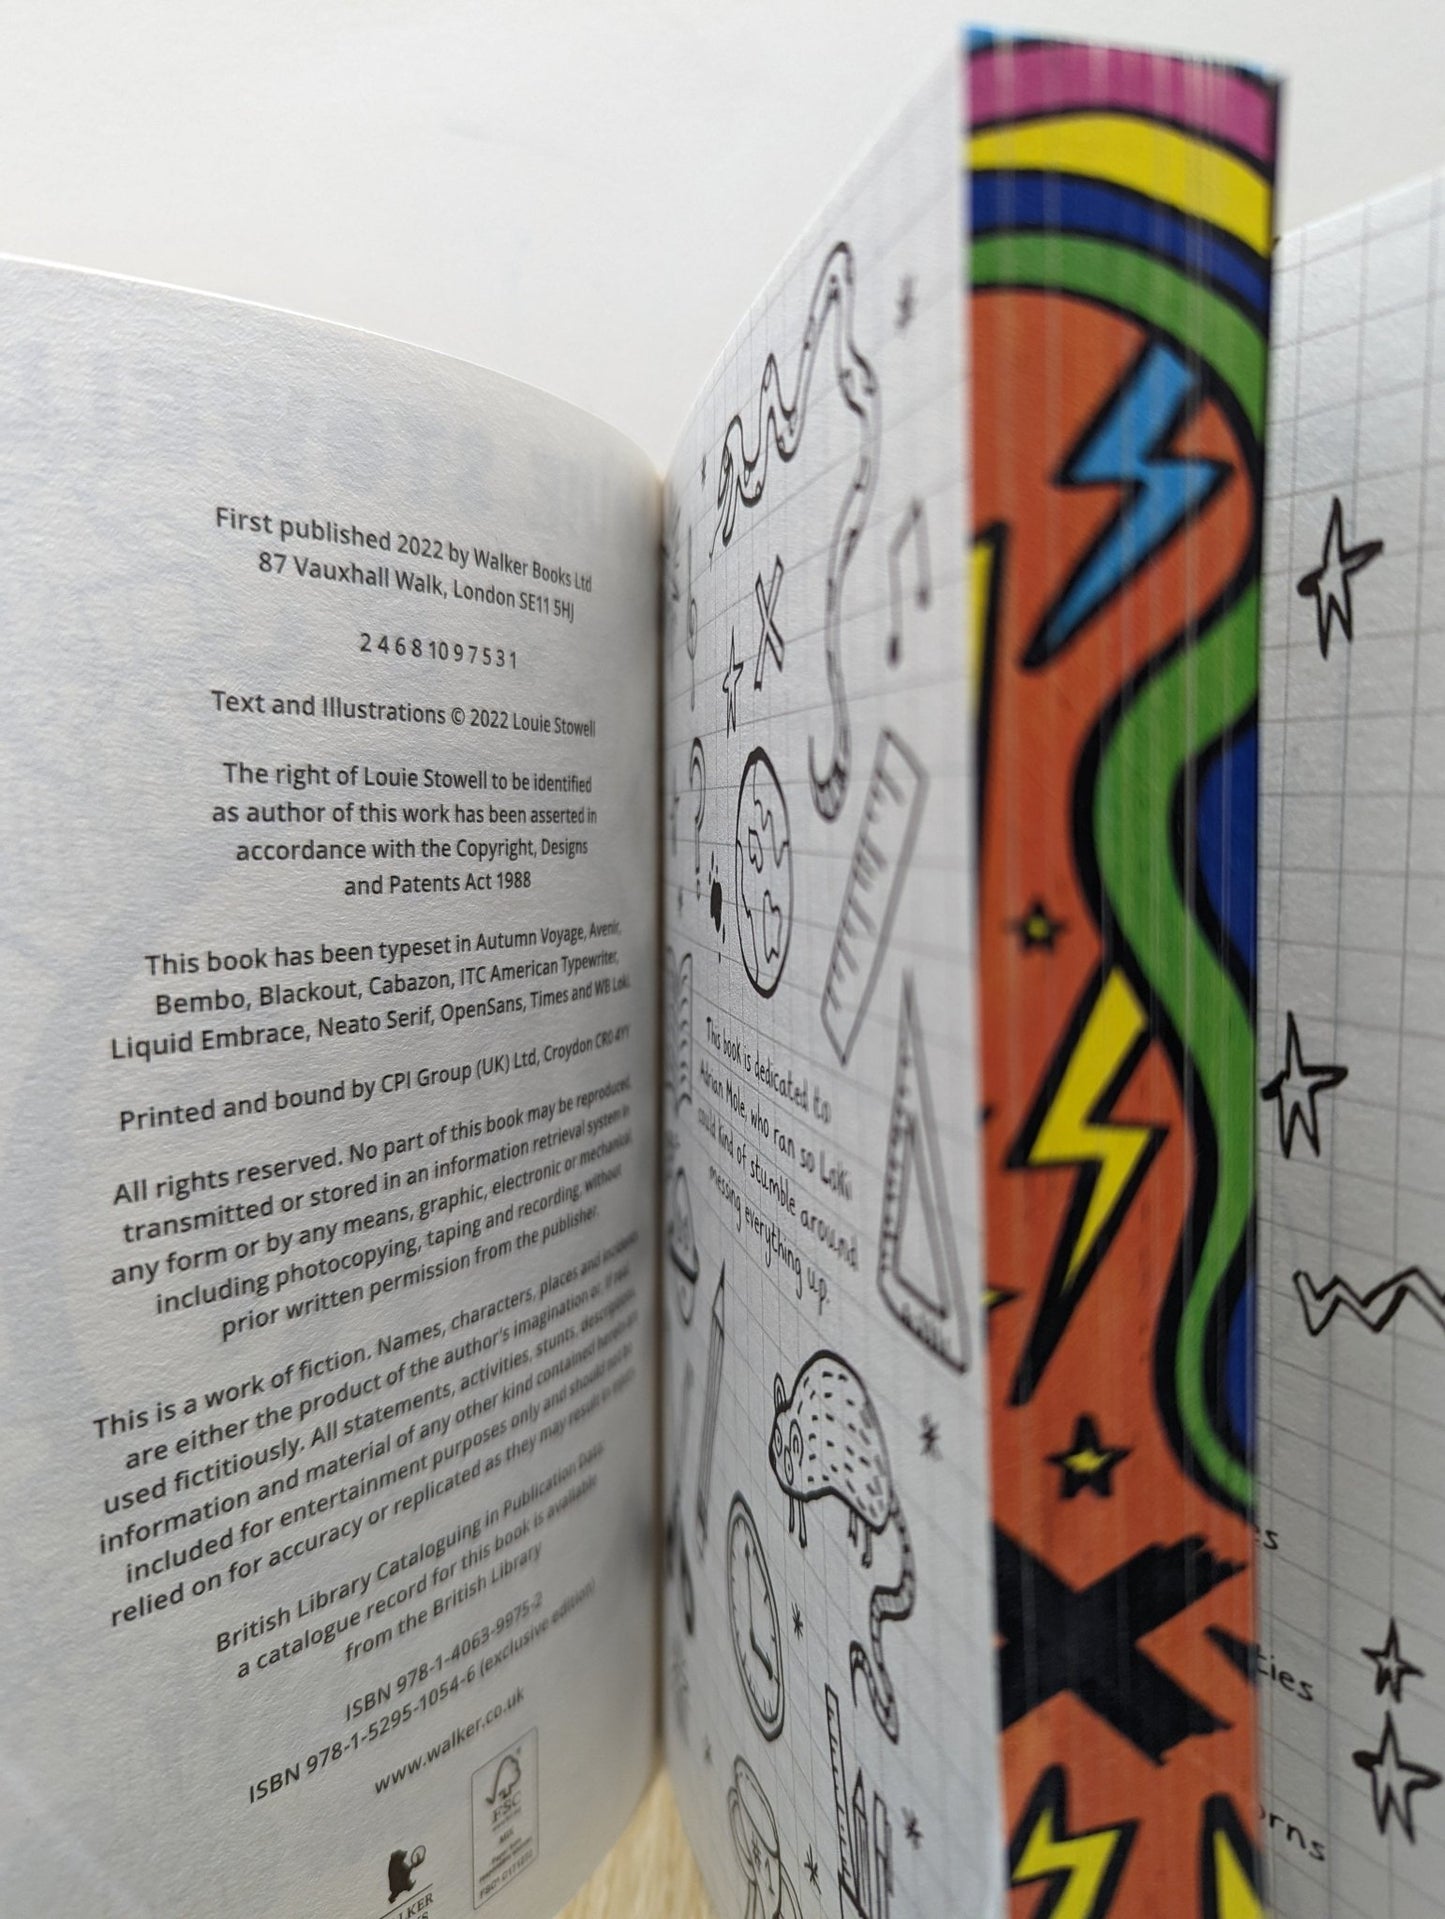 First published 2022 by Walker Books Ltd
87 Vauxhall Walk, London SE11 5HJ
2 4 6 8 10 9 7 5 3 1
Text and Illustrations © 2022 Louie Stowell
The right of Louie Stowell to be identified
as author of this work has been asserted in
accordance with the Copyright, Designs
and Patents Act 1988
This book has been typeset in Autumn Voyage, Avenir,
Bembo, Blackout, Cabazon, ITC American Typewriter,
Liquid Embrace, Neato Serif, OpenSans, Times and WB Loki.
Printed and bound by CPI Group (UK) Ltd, Croydon CR0 4YY
All rights reserved. No part of this book may be reproduced,
transmitted or stored in an information retrieval system in
any form or by any means, graphic, electronic or mechanical,
including photocopying, taping and recording, without
prior written permission from the publisher.
This is a work of fiction. Names, characters, places and incidents
are either the product of the author's imagination or, if real,
used fictitiously. All statements, activities, stunts, descriptions,
information and material of any other kind contained herein are
included for entertainment purposes only and should not be
relied on for accuracy or replicated as they may result in injury.
British Library Cataloguing in Publication Data:
a catalogue record for this book is available
from the British Library
ISBN 978-1-4063-9975-2
ISBN 978-1-5295-1054-6 (exclusive edition)
www.walker.co.uk
FSC
This book is dedicated to
Adrian Mole, who ran so Loki
could kind of stumble around
messing everything up.
ties
rns